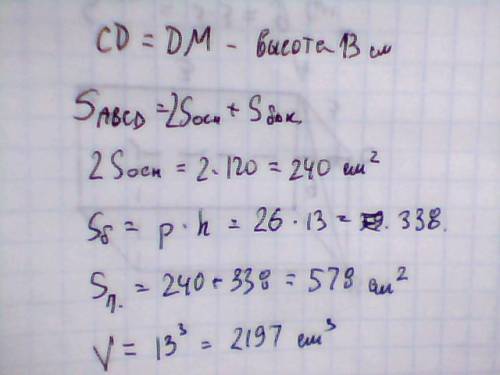 CD = DM - высота 13 см
S ABCD = 2Sосн + Sбок.
2Sосн = 2·120 = 240 см²
Sб = p·h = 26·13 = 338.
Sп. = 240 + 338 = 578 см²
V = 13³ = 2197 cm³